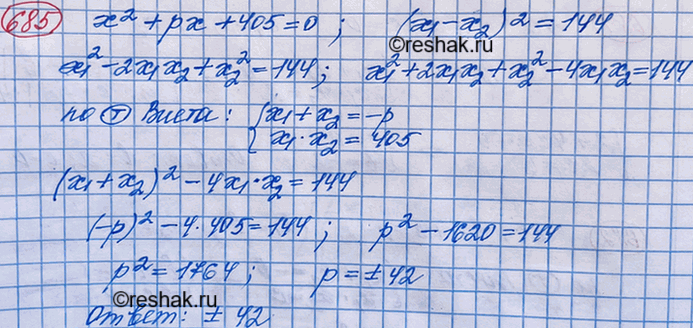 685 x² + px + 405 = 0 ; (x₁ - x₂)² = 144
x₁² - 2x₁x₂ + x₂² = 144 ; x₁² + 2x₁x₂ + x₂² - 4x₁x₂ = 144
по Ⓣ Виета : { x₁ + x₂ = -p
x₁ · x₂ = 405
©reshak.ru
(x₁ + x₂)² - 4x₁ · x₂ = 144
(-p)² - 4 · 405 = 144 ; p² - 1620 = 144
p² = 1764 ; p = ± 42
©reshak.ru
Ответ: ± 42